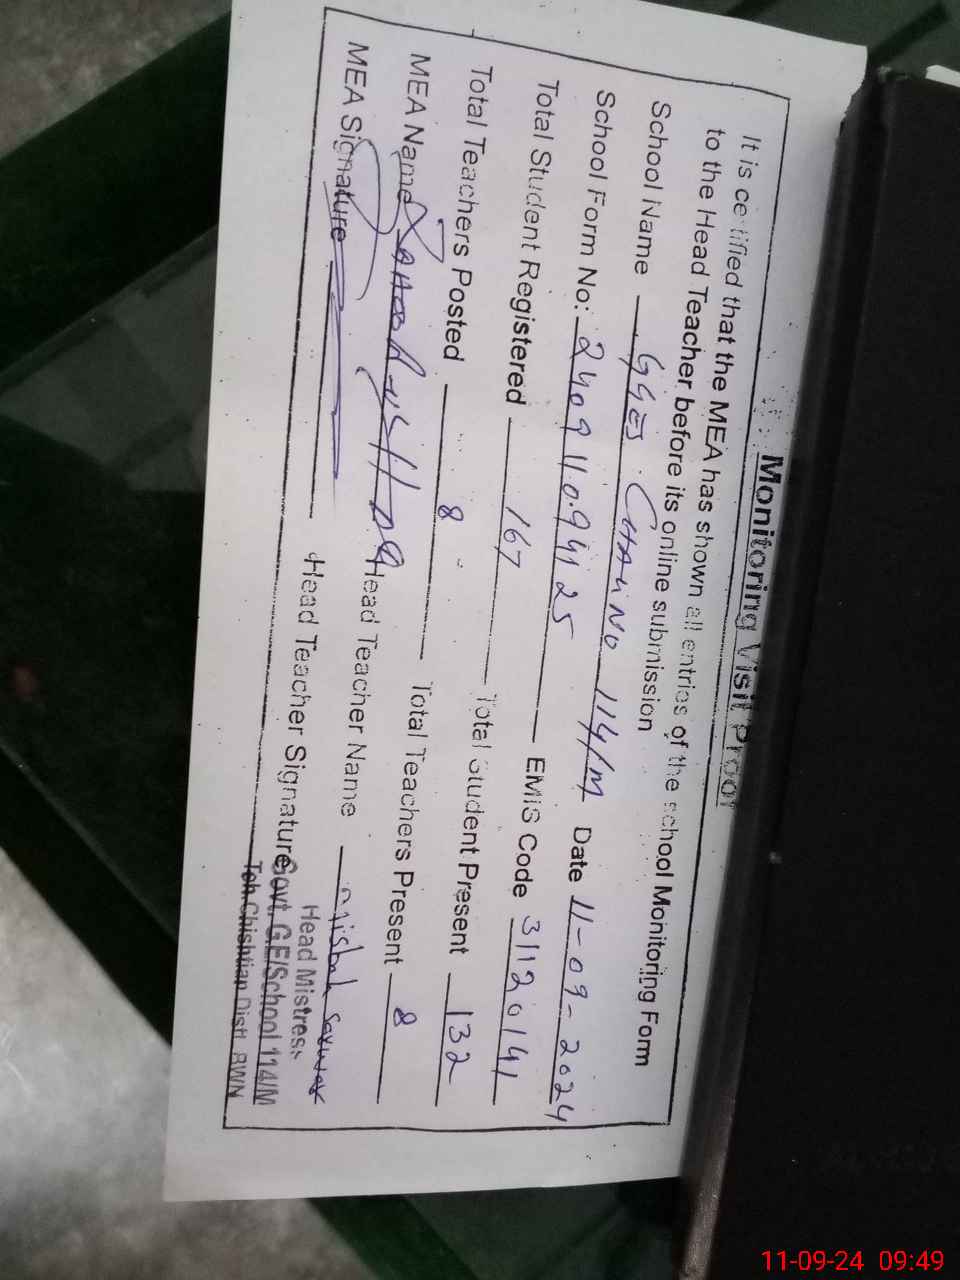 Monitoring Visit Proof
It is certified that the MEA has shown all entries of the school Monitoring Form
to the Head Teacher before its online submission
School Name GGES CHAK NO 114/M Date 11-09-2024
School Form No: 2409110.94125 EMIS Code 31120141
Total Student Registered 167 Total Student Present 132
Total Teachers Posted 8 Total Teachers Present 8
MEA Name Head Teacher Name
MEA Signature Head Teacher Signature
Head Mistress
Govt. G.E/School 114/M
Teh. Chishtian Distt. BWN
11-09-24 09:49